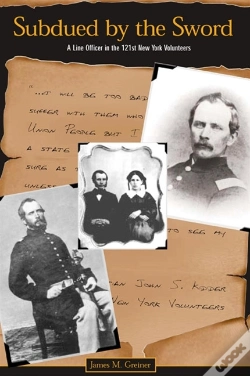 Subdued by the Sword
A Line Officer in the 121st New York Volunteers
"...it will be too bad
suffer with them who
Union People but I
a state
sure as
unless
to see my
an John S. Kidder
New York Volunteers
James M. Greiner